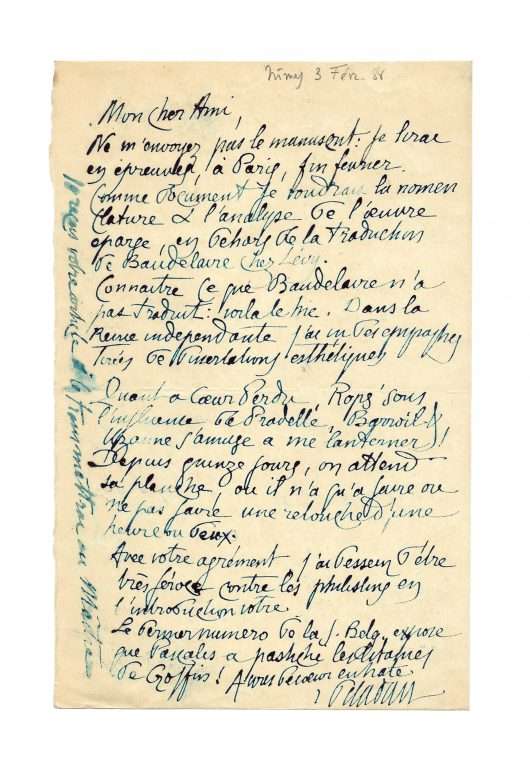 Nimes 3 Fév. 88
Mon cher Ami,
Ne m'envoyez pas le manuscrit: je lirai
en épreuves, à Paris, fin fevrier.
Comme document je voudrais la nomen
clature & l'analyse de l'œuvre
eparse, en dehors de la traduction
de Baudelaire chez Lévy.
Connaitre ce que Baudelaire n'a
pas traduit: voila le hic. Dans la
Revue independante j'ai vu des
tirées de dissertations esthétiques
Quant a Cœur Perdu, Rops sous
l'influence de Pradelle,
Uzanne s'amuse a me lanterner!
Depuis quinze jours, on attend
sa planche, ou il n'a qu'a faire ou
ne pas faire une retouche d'une
heure ou deux.
Avec votre agrément j'ai dessein d'être
très féroce contre les philistins en
l'introduction votre.
Le dernier numero de la J. Belg. expose
que a pastiché les
de Goffin! A vous de cœur en hate
Peladan
votre article & le transmettre au Maître